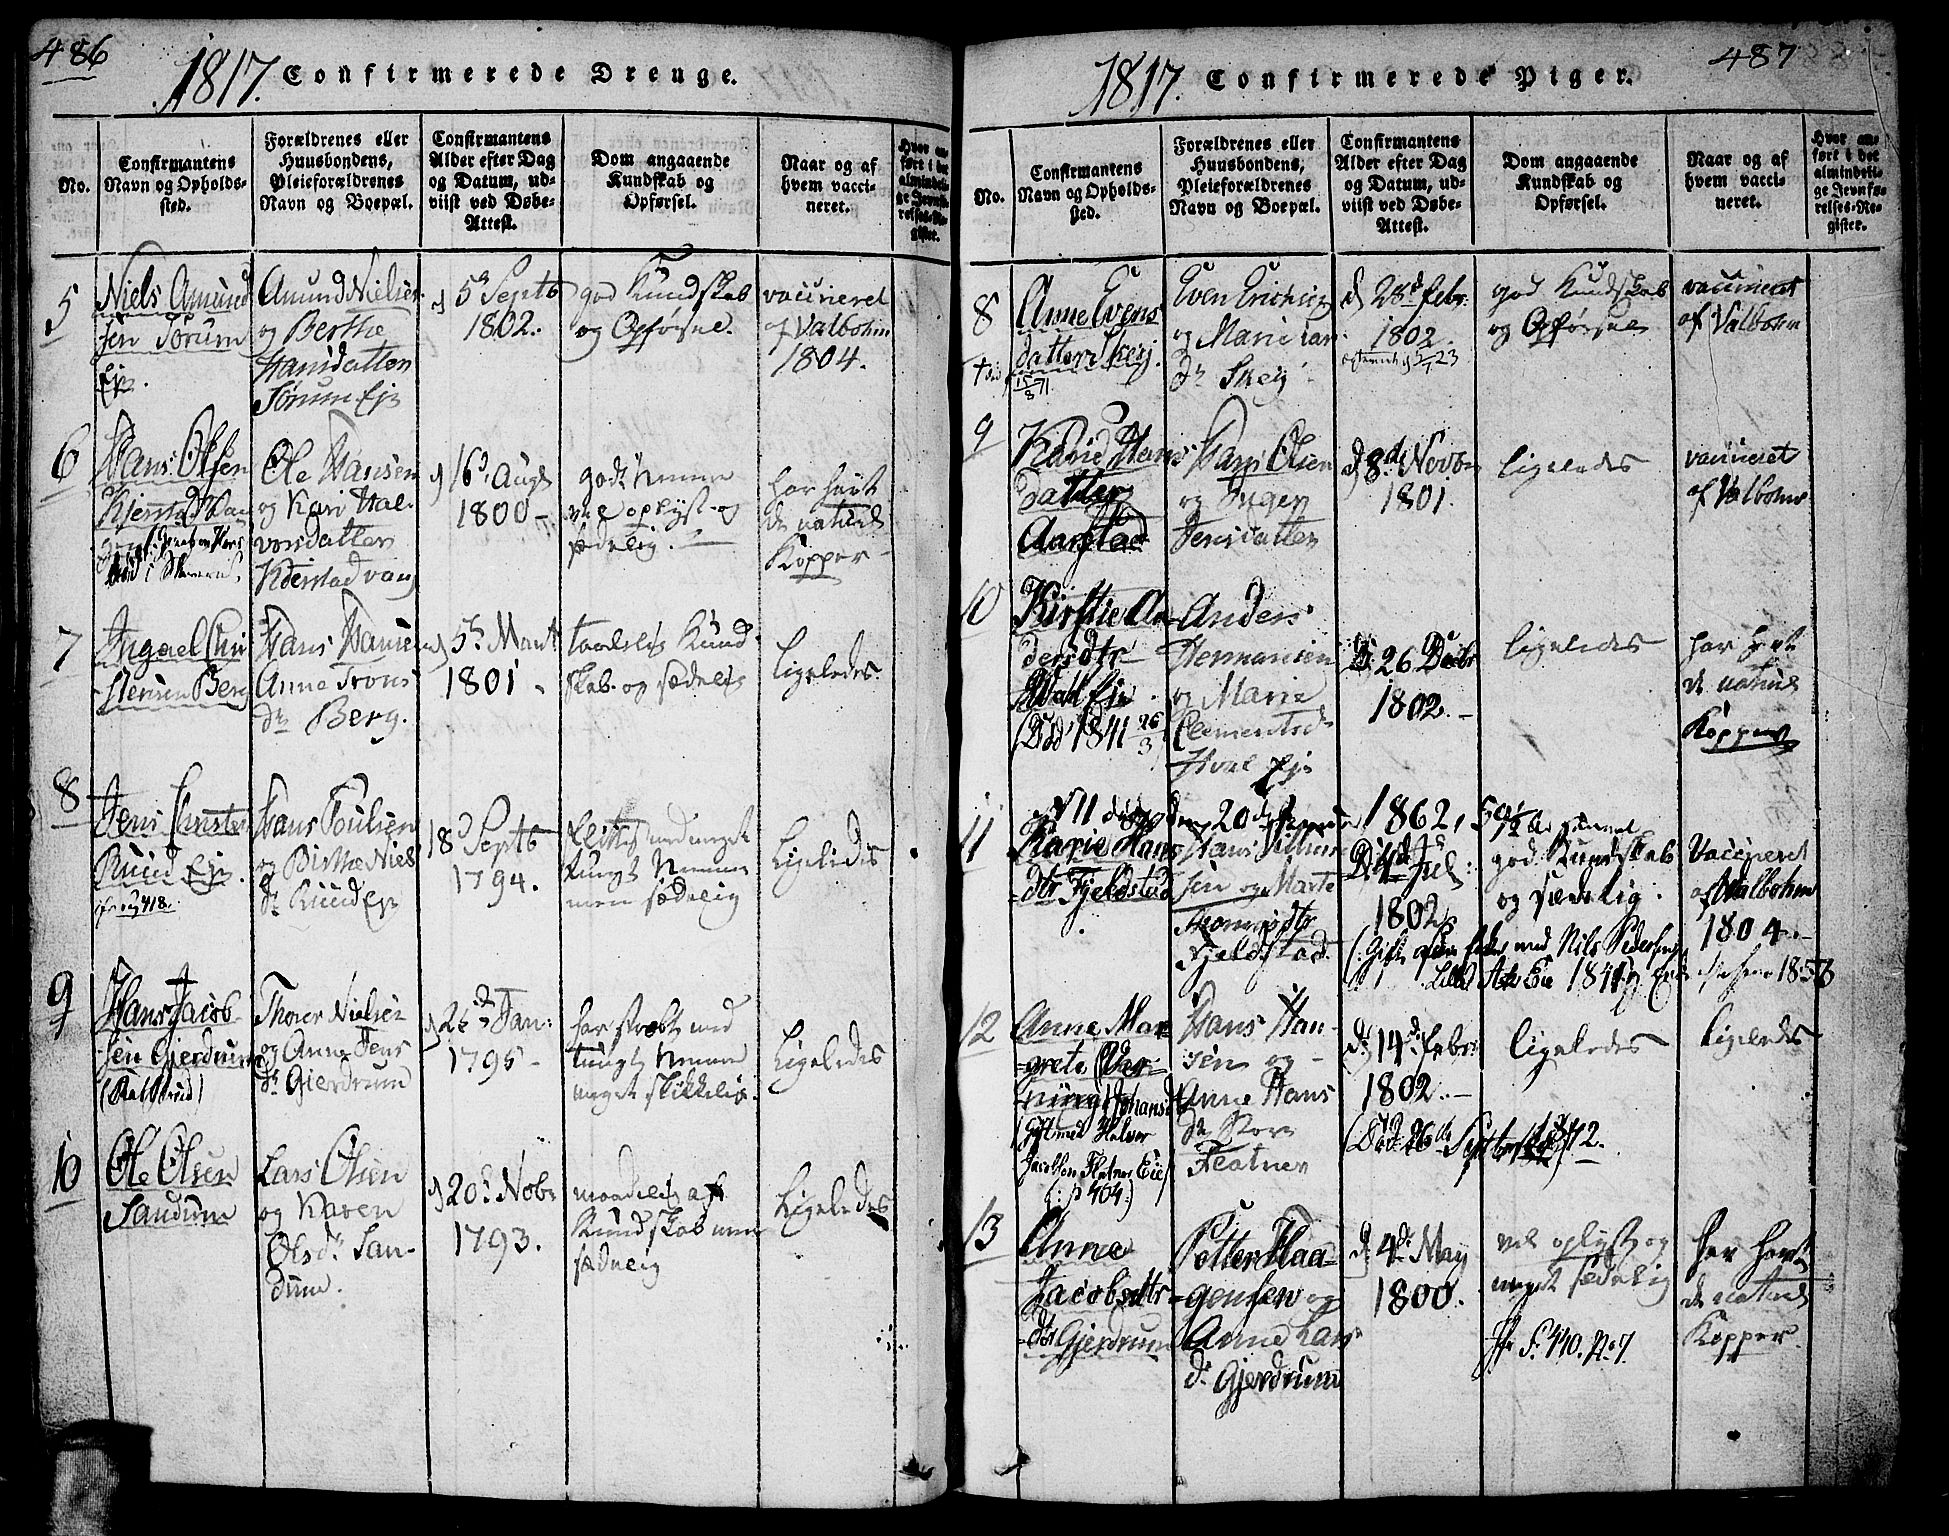 486
1817. Confirmerede Drenge.
No.
Confirmantens Navn og Opholds-sted.
Forældrenes eller Huusbondens, Pleieforældrenes Navn og Boepæl.
Confirmantens Alder efter Dag og Datum, ud-viist ved Døbe-Attest.
Dom angaaende Kundskab og Opførsel.
Naar og af hvem vacci-neret.
Hvor an-ført i det almindeli-ge Jevnfø-relses-Re-gister.
5
Niels Amund
sen Sørum
Eje.
Amund Nielsen
og Berthe
Hansdatter
Sørum Eje
5 Septb
1802.
god Kundskab
og Opførsel.
vaccineret
af Valbohm
1804.
6
Hans Olsen
Kjerstad
Ole Hansen
og Kari Hal-
vorsdatter
Kierstad
16 Augs
1800
godt Nemme
oplyst og
sædelig.
har havt
de naturl
Kopper
7
Ingael Chri
stensen Berg
Hans Hansen
Anne Trons
dr Berg.
5 Mart
1801.
taalelig Kund
skab og sædelig
Ligeledes.
8
Jens Christ
Ruud Eje.
Hans Poulsen
og Birthe Niels
dr Ruud Eje
18 Septb
1794.
tungt Nemme
men sædelig
Ligeledes
9
Hans Jacob
sen Gjerdrum
Thorer Nielsen
og Anne Jens
dr Gierdrum
Jan:
1795
har stræbt med
tungt Nemme
meget skikkelig.
Ligeledes
10
Ole Olsen
Sandum
Lars Olsen
og Karen
Olsdr San-
dum.
20 Nobr
1793.
maadelig af
Kundskab men
sædelig
Ligeledes
487
1817. Confirmerede Piger.
No.
Confirmantens Navn og Opholds-sted.
Forældrenes eller Huusbondens, Pleieforældrenes Navn og Boepæl.
Confirmantens Alder efter Dag og Datum, ud-viist ved Døbe-Attest.
Dom angaaende Kundskab og Opførsel.
Naar og af hvem vacci-neret.
Hvor an-ført i det almindeli-ge Jevnfø-relses-Re-gister.
8
Anne Evens
datter Skej.
Even Erichsen
og Marie Lars
dr Skej
d 28d febr.
1802.
god Kundskab
og Opførsel
vaccineret
af Valbohm
9
Karie Hans
datter
Aarstad
Hans Olsen
og Inger
Jensdatter
d 8d Novbr
1801.
ligeledes
vaccineret
af Valbohm
10
Kirstie An-
dersdtr
Hval Eje.
(Død 1841 26/3
Anders
Hermansen
og Marie
Clementsdr
Hval Eje
26 Decbr
1802.
ligeledes
har havt
de naturl
Kopper
1862,
11
Karie Hans
dtr Fjeldstad
sen og Marte
Fjeldstad.
4d Jul:
1802.
god Kundskab
og sædelig.
Vaccineret
af Walbohm
1804.
(Gift med Nils
12
Anne Mar-
grete
Gift med Halvor
Jacobsen Flatner Eie
(: p 404.)
Hans Han-
sen og
Anne Hans
dr Store
Flatner
d. 14d febr
1802.
ligeledes
ligeledes
13
Anne
Jacobsdtr
Gjerdrum
Petter Haa-
gensen og
Anne Lars
dr Gjerdrum
d. 4d. May
1800.
vel oplyst og
meget sædelig
S. 440. No 7.
har havt
de naturl
Kopper.